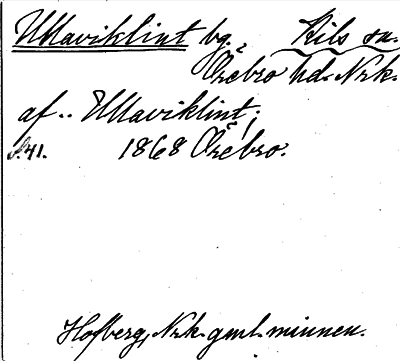 Ullaviklint bg. Kils sn.
Örebro hd. Nrk.
af .. Ullaviklint;
S. 41. 1868 Örebro.
Hofberg, Nrk. gml. minnen.